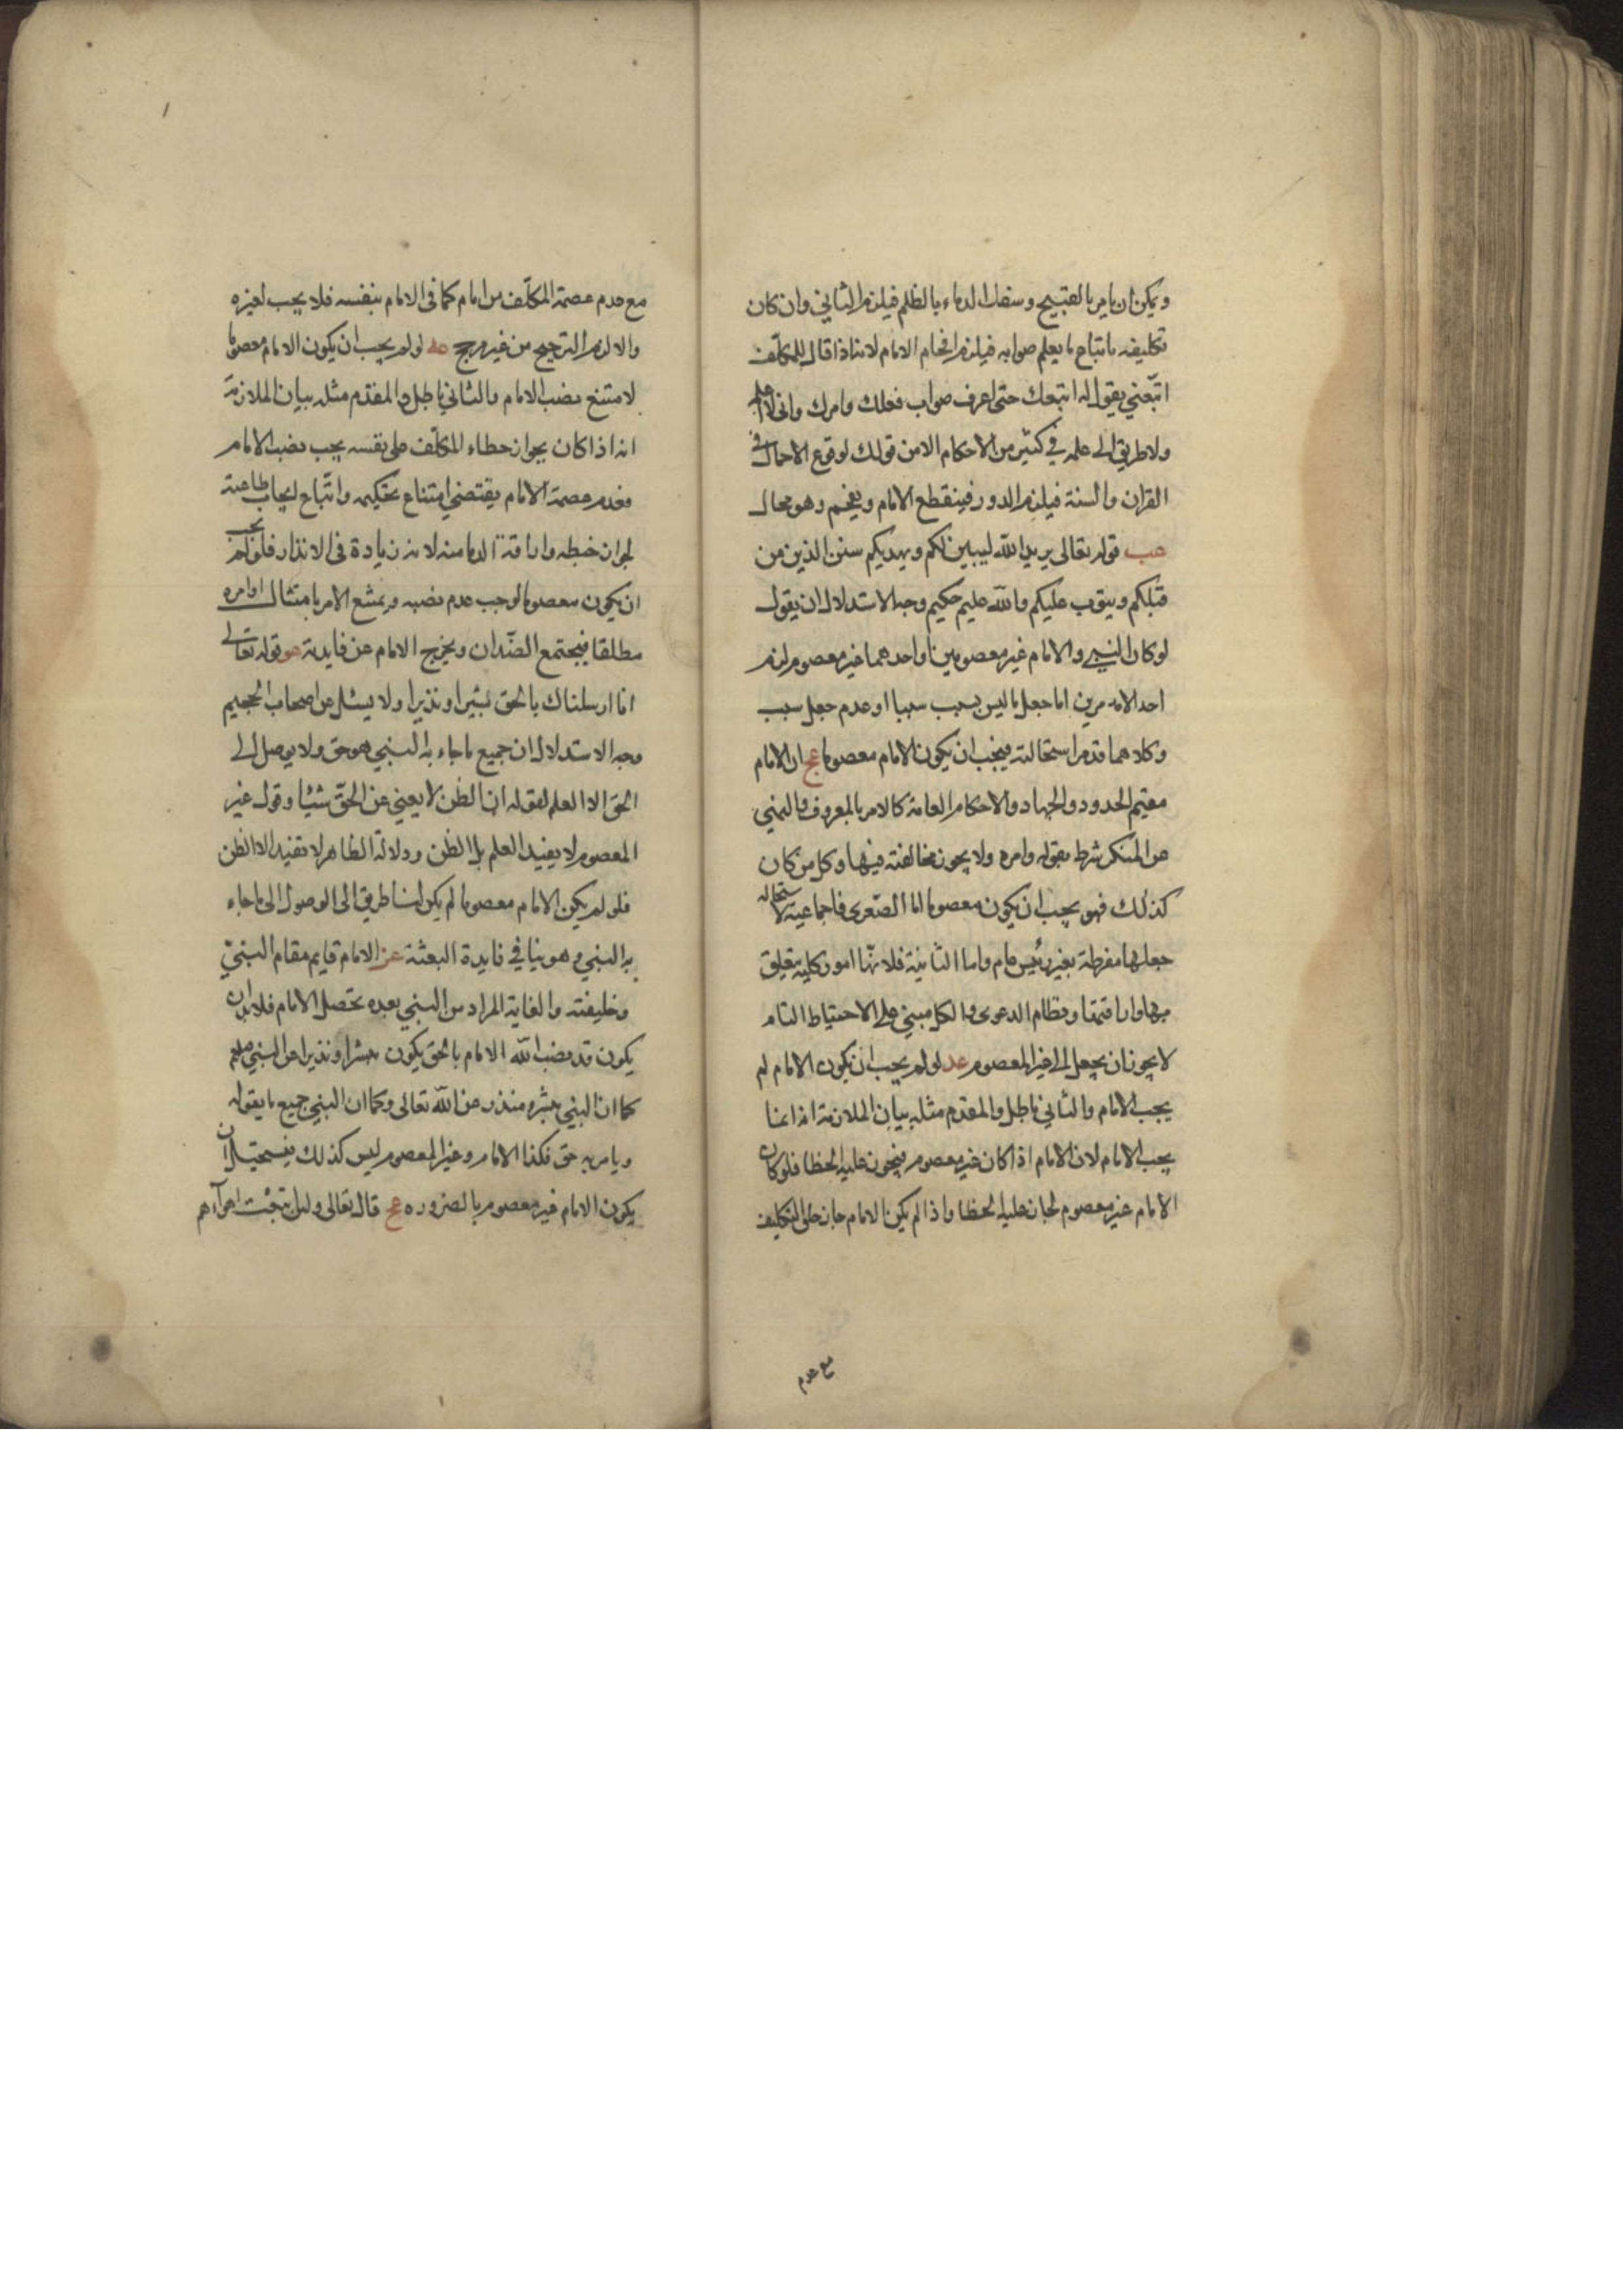 ويمكن ان يامر بالقبيح وسفك الدماء بالظلم فيلزم الثاني وان كان
تكليفه باتباع ما يعلم صوابه فيلزم افحام الامام لانه اذا قال للمكلف
اتبعني يقول له اتبعك حتى اعرف صواب فعلك وامرك واني لا اعلم
ولا طريق الى علمه في كثير من الاحكام الا من قولك لوقوع الاجمال في
القران والسنة فيلزم الدور فينقطع الامام ويفحم وهو محال
عب قوله تعالى يريد الله ليبين لكم ويهديكم سنن الذين من
قبلكم ويتوب عليكم والله عليم حكيم وجه الاستدلال ان يقول
لو كان النبي والامام غير معصومين او احدهما غير معصوم لزم
احد الامرين اما جعل ما ليس بسبب سببا او عدم جعل سبب
وكلاهما قدم استحالته فيجب ان يكون الامام معصوما عج ان الامام
مقيم الحدود والجهاد والاحكام العامة كالامر بالمعروف والنهي
عن المنكر شرط بقوله وامره ولا يجوز مخالفته فيها وكل من كان
كذلك فهو يجب ان يكون معصوما اما الصغرى فاجماعية لاستحالة
جعلها مفرطة بغير رئيس عام واما الثانية فلانها امور كلية يتعلق
بها واراقتها ونظام الدعوى والكل مبني على الاحتياط التام
لا يجوز ان يجعل الى غير المعصوم عد لو لم يجب ان يكون الامام لم
يجب الامام والثاني باطل والمقدم مثله بيان الملازمة انه انما
يجب الامام لان الامام اذا كان غير معصوم فيجوز عليه الخطا فلو كان
الامام غير معصوم لجاز عليه الخطا واذا لم يكن الامام جاز على التكليف
مع عدم
مع عدم عصمة المكلف من امام كما في الامام بنفسه فلا يجب لغيره
والا لزم الترجيح من غير مرجح عه لو لم يجب ان يكون الامام معصوما
لامتنع نصب الامام والثاني باطل والمقدم مثله بيان الملازمة
انه اذا كان بجواز خطاء المكلف على نفسه يجب نصب الامام
فعدم عصمة الامام يقتضي امتناع تحكيمه واتباع ايجاب طاعته
لجواز خبطه واراقة الدما منه لانه زيادة في الانذار فلو لم يجب
ان يكون معصوما لوجب عدم نصبه ويمتنع الامر بامتثال اوامره
مطلقا فيجتمع الضدان ويخرج الامام عن فايدته عو قوله تعالى
انا ارسلناك بالحق بشيرا ونذيرا ولا يسئل عن اصحاب الجحيم
وجه الاستدلال ان جميع ما جاء به النبي هو حق ولا يوصل الى
الحق الا العلم لقوله ان الظن لا يغني عن الحق شيئا وقول غير
المعصوم لا يفيد العلم بل الظن ودلالة الظاهر لا تفيد الا الظن
فلو لم يكن الامام معصوما لم يكن لنا طريق الى الوصول الى ما جاء
به النبي وهو ينافي فايدة البعثة عز الامام قايم مقام النبي
وخليفته والغاية المراد من النبي بعده تحصل الامام فلا بد ان
يكون قد نصب الله الامام بالحق يكون مبشرا ونذيرا عن النبي صلعم
كما ان النبي مبشره منذر عن الله تعالى وكما ان النبي جميع ما يقوله
ويامر به حق فكذا الامام وغير المعصوم ليس كذلك فيستحيل ان
يكون الامام غير معصوم بالضروره عح قال تعالى ولئن اتبعت اهوآءهم